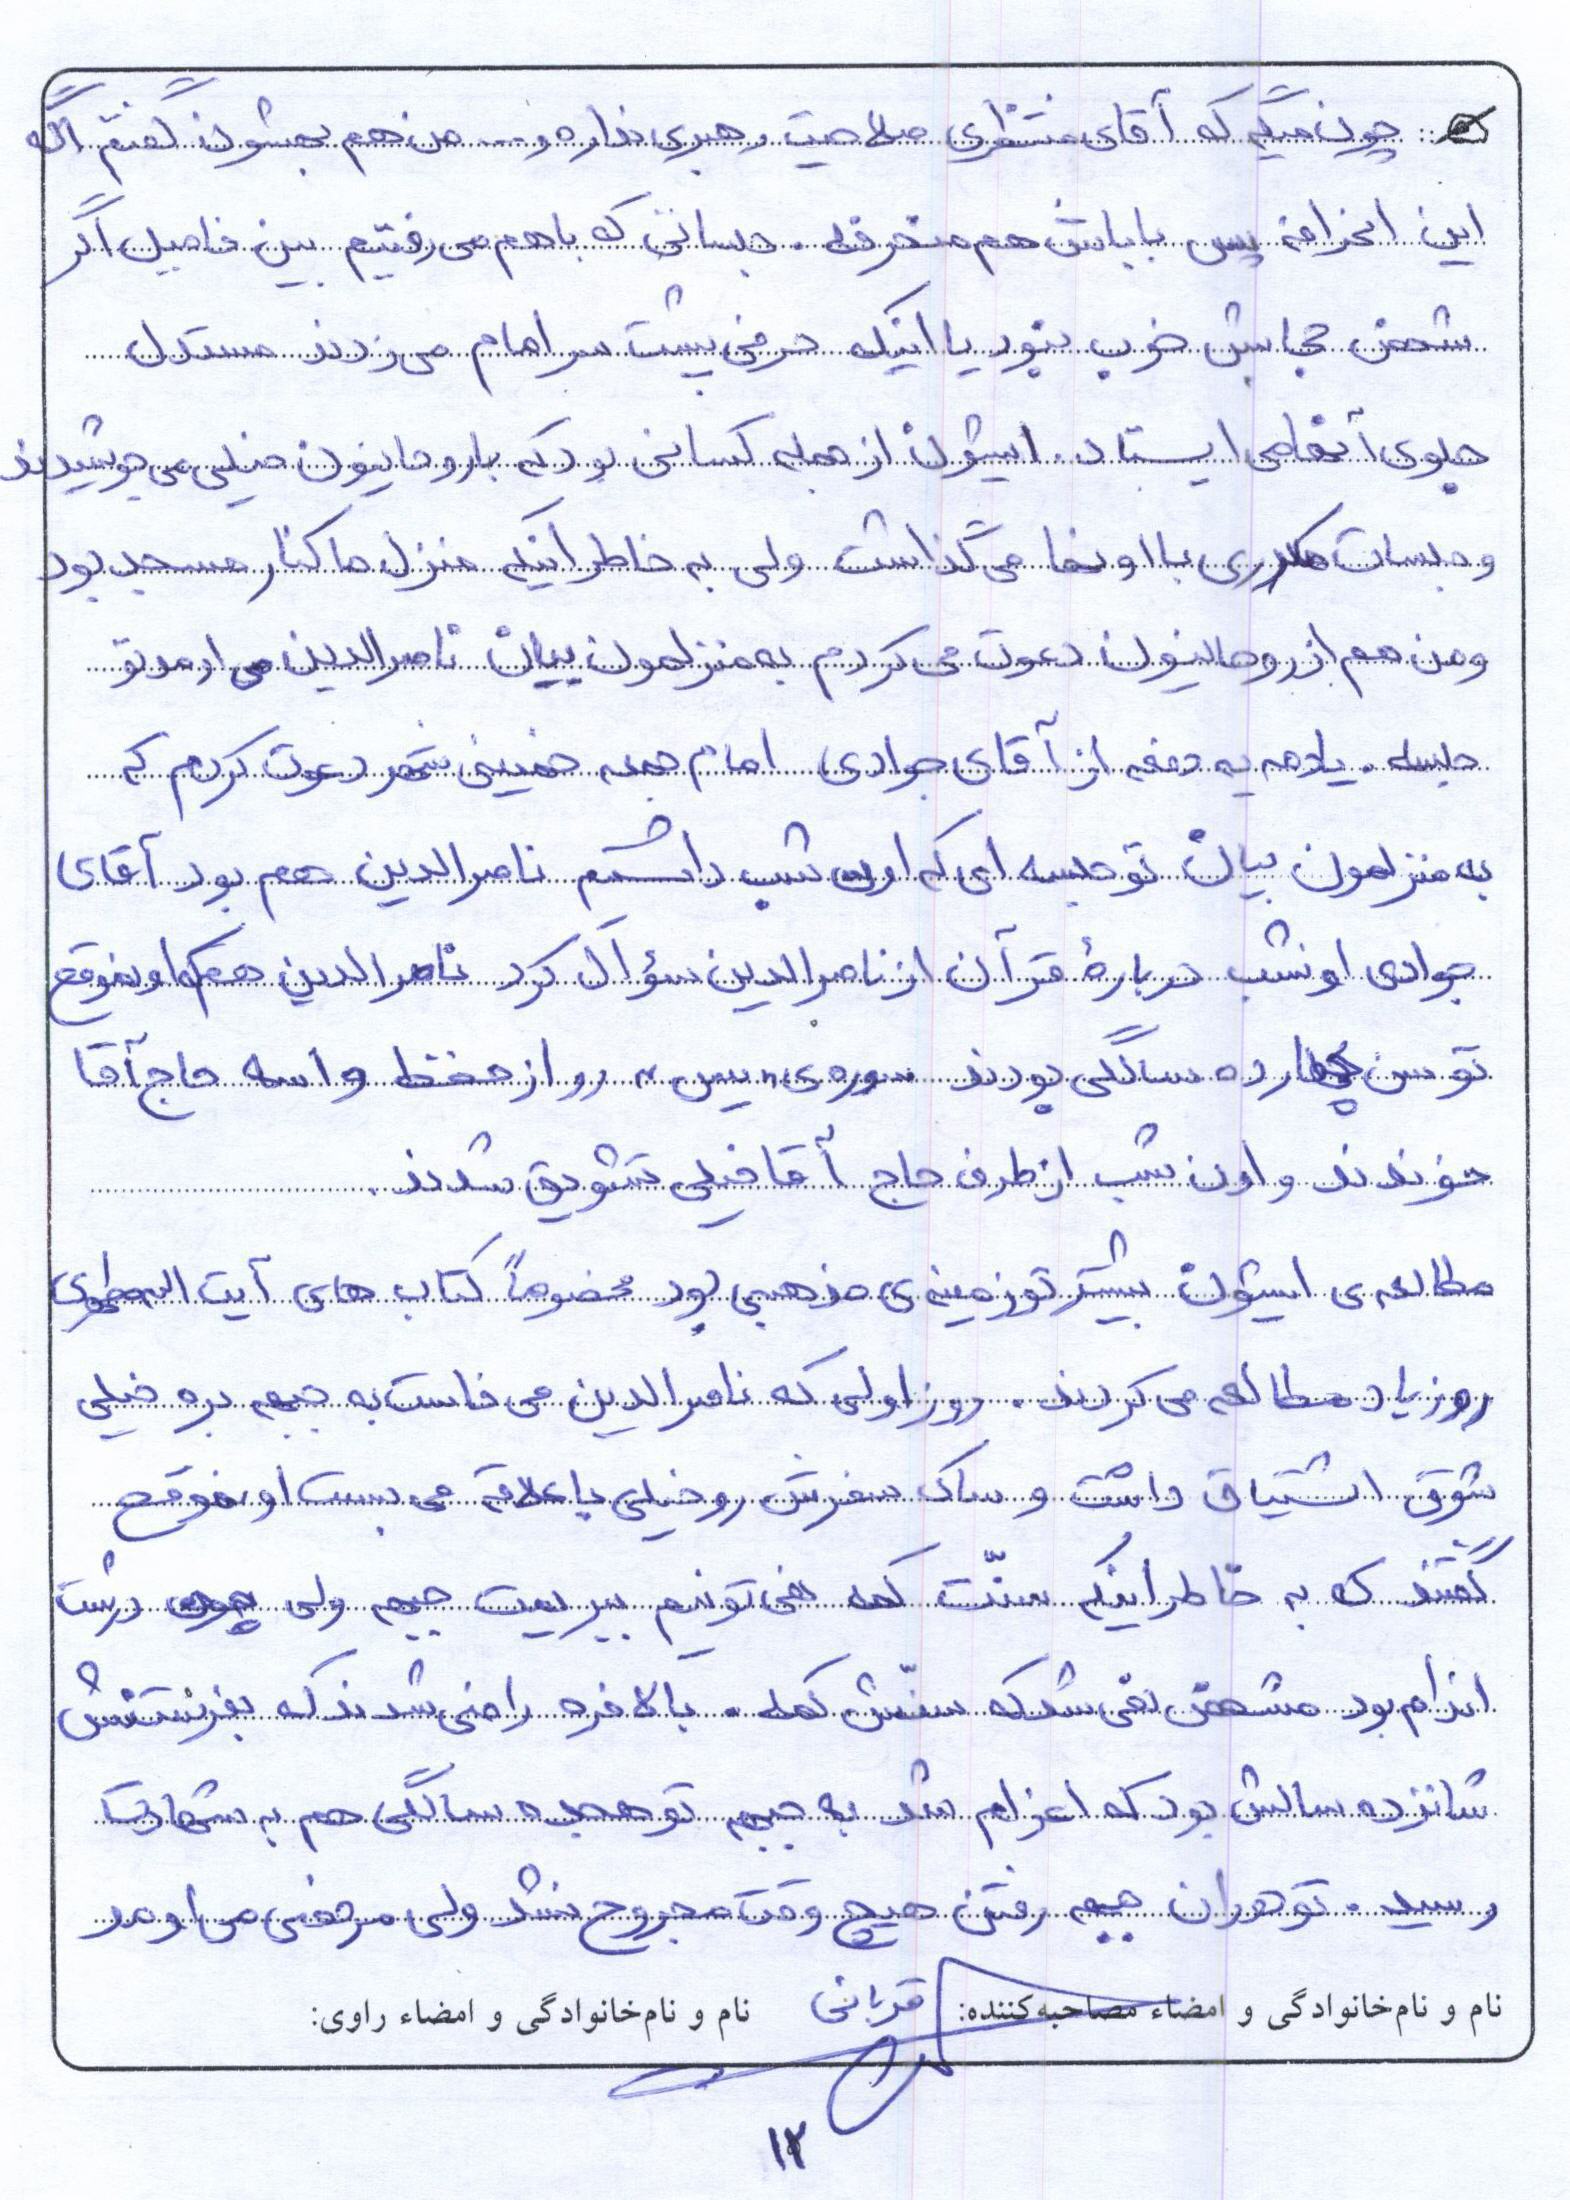 چون میگه که آقای منتظری صلاحیت رهبری نداره و... من هم بهشون گفتم اگه
این انحرافه پس باباش هم منحرفه. جلساتی که باهم می رفتیم بین فامیل اگر
شخص حجابش خوب نبود یا اینکه حرفی پشت سر امام می زدند مستدل
جلوی آنها می ایستاد. ایشون از جمله کسانی بود که با روحانیون خیلی می جوشیدند
و جلسات مکرری با اونها می گذاشت ولی به خاطر اینکه منزل ما کنار مسجد بود
و من هم از روحانیون دعوت می کردم به منزلمون بیان ناصرالدین می اومد تو
جلسه. یادمه یه دفعه از آقای جوادی امام جمعه خمینی شهر دعوت کردم که
به منزلمون بیان تو جلسه ای که اون شب داشتیم ناصرالدین هم بود آقای
جوادی اونشب دربارۀ قرآن از ناصرالدین سؤال کرد ناصرالدین هم که اونموقع
تو سن چهارده سالگی بودند سوره ی "یس" رو از حفظ واسه حاج آقا
خوندند و اون شب از طرف حاج آقا خیلی تشویق شدند.
مطالعه ی ایشون بیشتر تو زمینه ی مذهبی بود مخصوصاً کتاب های آیت اله مطهری
رو زیاد مطالعه می کردند. روز اولی که ناصرالدین می خاست به جبهه بره خیلی
شوق اشتیاق داشت و ساک سفرش رو خیلی با علاقه می بست اونموقع
گفتند که به خاطر اینکه سنّت کمه نمی تونیم ببریمت جبهه ولی چون درشت
اندام بود مشخص نمی شد که سنّش کمه. بالاخره راضی شدند که بفرستنش
شانزده سالش بود که اعزام شد به جبهه تو هجده سالگی هم به شهادت
رسید. تو دوران جبهه رفتن هیچ وقت مجروح نشد ولی مرخصی می اومد
نام و نام‌خانوادگی و امضاء مصاحبه‌کننده: قربانی نام و نام‌خانوادگی و امضاء راوی:
۱۲